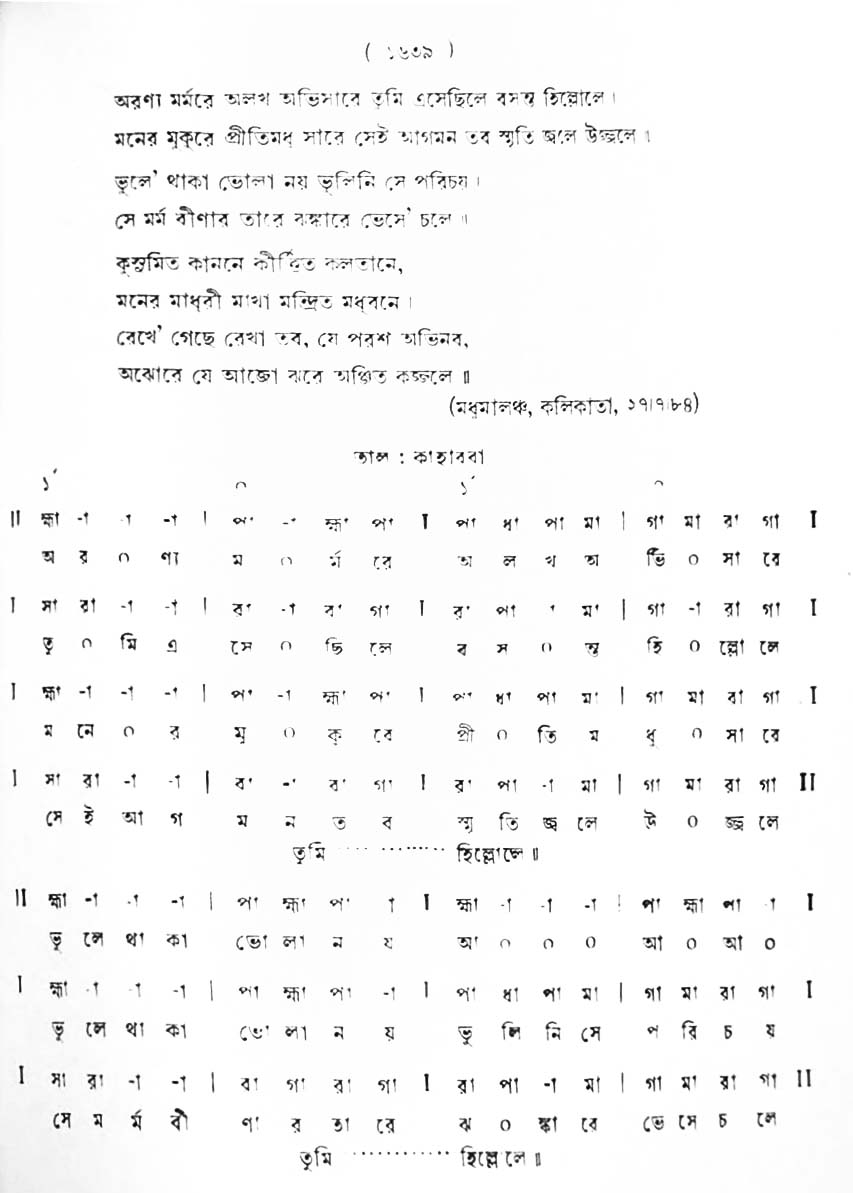 ( ১৬৩৯ )
অরণ্য মর্মরে অলখ অভিসারে তুমি এসেছিলে বসন্ত হিল্লোলে।
মনের মুকুরে প্রীতিমধু সারে সেই আগমন তব স্মৃতি জ্বলে উজ্জ্বলে॥
ভুলে' থাকা ভোলা নয় ভুলিনি সে পরিচয়।
সে মর্ম বীণার তারে ঝঙ্কারে ভেসে' চলে॥
কুসুমিত কাননে কীর্ত্তিত কলতানে,
মনের মাধুরী মাখা মন্দ্রিত মধুবনে।
রেখে' গেছে রেখা তব, যে পরশ অভিনব,
অঝোরে যে আজো ঝরে অঞ্চিত কজ্জলে॥
(মধুমালঞ্চ, কলিকাতা, ১৭।৭।৮৪)
তাল : কাহারবা
১´ ০ ১´ ০
II হ্মা -া -া -া | পা -া হ্মা পা I পা ধা পা মা | গা মা রা গা I
অ র ০ ণ্য ম ০ র্ম রে অ ল খ অ ভি ০ সা রে
I সা রা -া -া | রা -া রা গা I রা পা -া মা | গা -া রা গা I
তু ০ মি এ সে ০ ছি লে ব স ০ ন্ত হি ০ ল্লো লে
I হ্মা -া -া -া | পা -া হ্মা পা I পা ধা পা মা | গা মা রা গা I
ম নে ০ র মু ০ কু রে প্রী ০ তি ম ধু ০ সা রে
I সা রা -া -া | রা -া রা গা I রা পা -া মা | গা মা রা গা II
সে ই আ গ ম ন ত ব স্মৃ তি জ্ব লে উ ০ জ্জ্ব লে
তুমি ............ হিল্লোলে॥
II হ্মা -া -া -া | পা হ্মা পা া I হ্মা -া -া -া | পা হ্মা পা -া I
ভু লে থা কা ভো লা ন য় আ ০ ০ ০ আ ০ আ ০
I হ্মা -া -া -া | পা হ্মা পা -া I পা ধা পা মা | গা মা রা গা I
ভু লে থা কা ভো লা ন য় ভু লি নি সে প রি চ য়
I সা রা -া -া | রা গা রা গা I রা পা -া মা | গা মা রা গা II
সে ম র্ম বী ণা র তা রে ঝ ০ ঙ্কা রে ভে সে চ লে
তুমি ............ হিল্লোলে॥